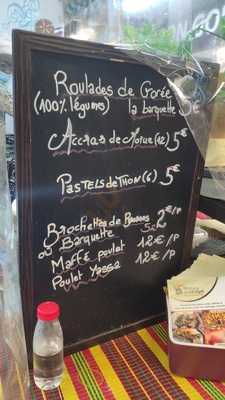 Roulades de Gorée
(100% légumes) la barquette 5€
Accras de Morue (12) 5€
Pastels de Thon (6) 5€
Brochettes de Bananes 2€/P
ou Barquette 5€
Maffé poulet 12€/P
Poulet Yassa 12€/P